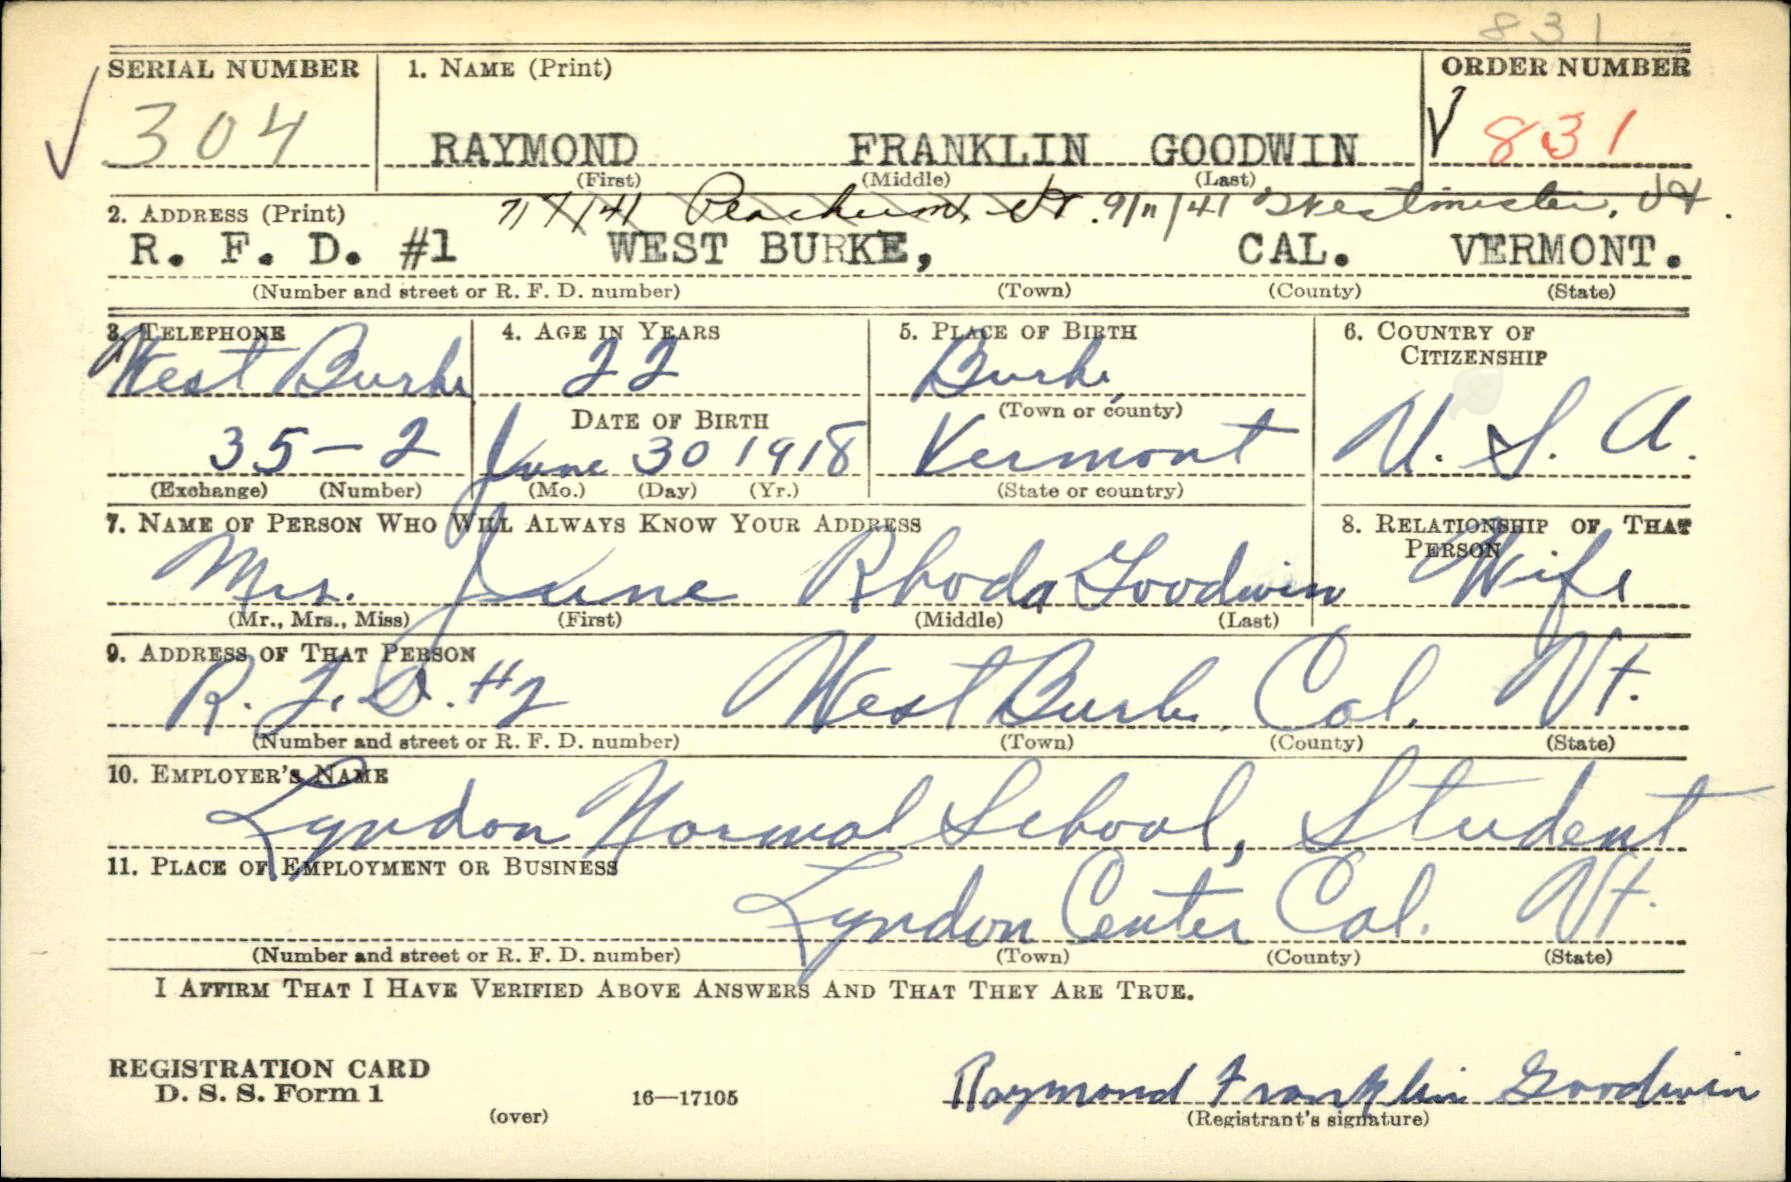 831
SERIAL NUMBER 1. NAME (Print) ORDER NUMBER
304 RAYMOND FRANKLIN GOODWIN 831
(First) (Middle) (Last)
2. ADDRESS (Print) 7/7/41 Peacham, Vt. 9/11/41 Westminster, Vt.
R. F. D. #1 WEST BURKE, CAL. VERMONT.
(Number and street or R. F. D. number) (Town) (County) (State)
3. TELEPHONE 4. AGE IN YEARS 5. PLACE OF BIRTH 6. COUNTRY OF
CITIZENSHIP
West Burke 22 Burke,
DATE OF BIRTH (Town or county)
35-2 June 30 1918 Vermont U. S. A.
(Exchange) (Number) (Mo.) (Day) (Yr.) (State or country)
7. NAME OF PERSON WHO WILL ALWAYS KNOW YOUR ADDRESS 8. RELATIONSHIP OF THAT
PERSON
Mrs. June Rhoda Goodwin Wife
(Mr., Mrs., Miss) (First) (Middle) (Last)
9. ADDRESS OF THAT PERSON
R. F. D. #2 West Burke, Cal. Vt.
(Number and street or R. F. D. number) (Town) (County) (State)
10. EMPLOYER'S NAME
Lyndon Normal School, Student
11. PLACE OF EMPLOYMENT OR BUSINESS
Lyndon Center Cal. Vt.
(Number and street or R. F. D. number) (Town) (County) (State)
I AFFIRM THAT I HAVE VERIFIED ABOVE ANSWERS AND THAT THEY ARE TRUE.
REGISTRATION CARD
D. S. S. Form 1 16—17105 Raymond Franklin Goodwin
(over) (Registrant's signature)